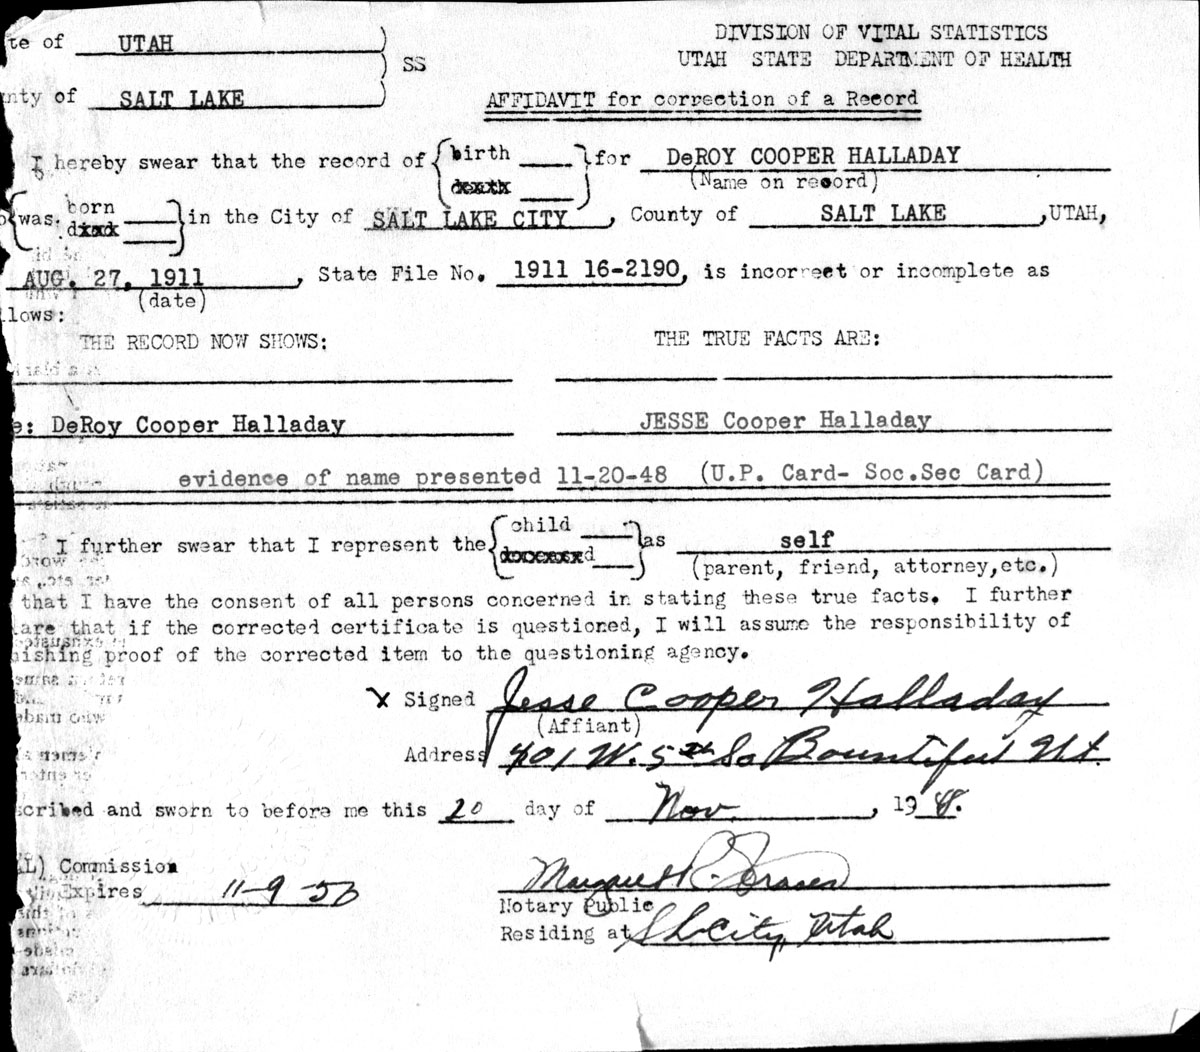 te of UTAH ) DIVISION OF VITAL STATISTICS
) SS UTAH STATE DEPARTMENT OF HEALTH
nty of SALT LAKE ) AFFIDAVIT for correction of a Record
I hereby swear that the record of { birth ____ } for DeROY COOPER HALLADAY
death ____ (Name on record)
o { was born ____ } in the City of SALT LAKE CITY, County of SALT LAKE, UTAH,
died ____
AUG. 27, 1911, State File No. 1911 16-2190, is incorrect or incomplete as
(date)
llows:
THE RECORD NOW SHOWS: THE TRUE FACTS ARE:
e: DeRoy Cooper Halladay JESSE Cooper Halladay
evidence of name presented 11-20-48 (U.P. Card- Soc.Sec Card)
I further swear that I represent the { child ____ } as self
d____ (parent, friend, attorney,etc.)
that I have the consent of all persons concerned in stating these true facts. I further
lare that if the corrected certificate is questioned, I will assume the responsibility of
nishing proof of the corrected item to the questioning agency.
X Signed Jesse Cooper Halladay
(Affiant)
Address 401 W. 5th So Bountiful Ut.
scribed and sworn to before me this 20 day of Nov. , 1948.
AL) Commission
Expires 11-9-50 Margaret R.
Notary Public
Residing at S L City, Utah